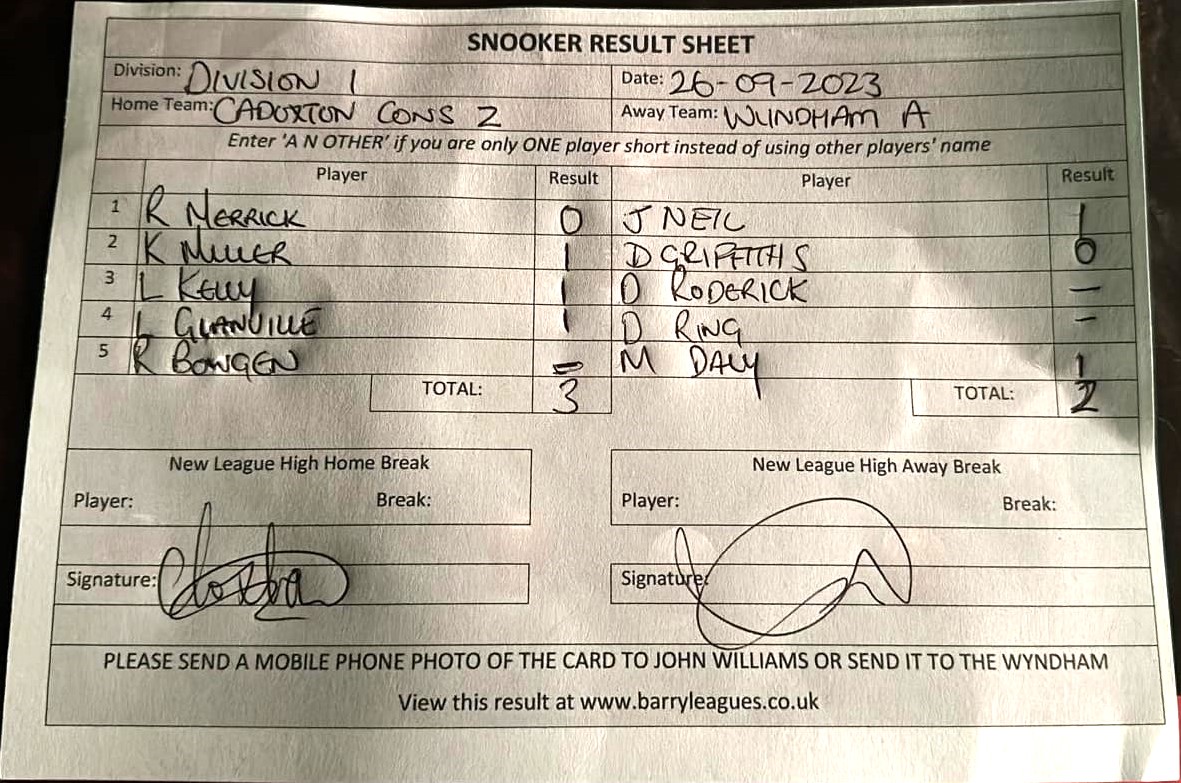 SNOOKER RESULT SHEET
Division: DIVISION 1 Date: 26-09-2023
Home Team: CADOXTON CONS 2 Away Team: WINDHAM A
Enter 'A N OTHER' if you are only ONE player short instead of using other players' name
Player Result Player Result
1 R MERRICK 0 J NEIL 1
2 K MILLER 1 D GRIFFITHS 0
3 L KELLY 1 D RODERICK –
4 L GLANVILLE 1 D RING –
5 R BOWGEN – M DALY 1
TOTAL: 3 TOTAL: 2
New League High Home Break New League High Away Break
Player: Break: Player: Break:
Signature: Signature:
PLEASE SEND A MOBILE PHONE PHOTO OF THE CARD TO JOHN WILLIAMS OR SEND IT TO THE WYNDHAM
View this result at www.barryleagues.co.uk